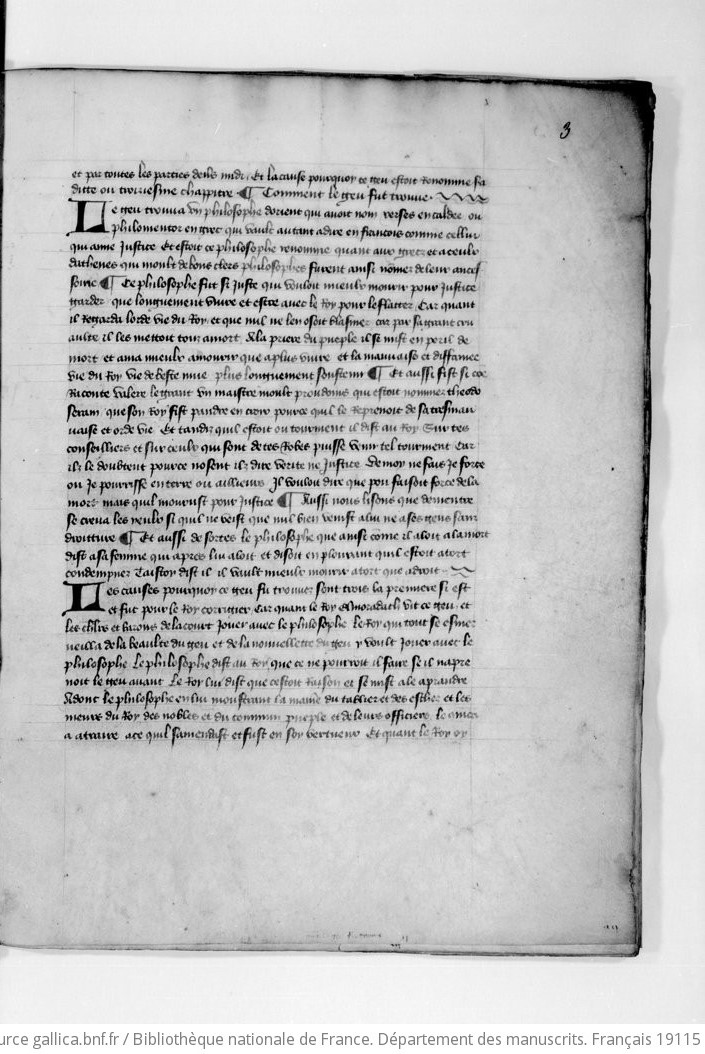 3
et par toutes les parties devers midi Et la cause pourquoy ce geu estoit Renomme sa
ditte ou troiziesme chappitre ¶ Comment le geu fut trouve
Le geu trouva un philosophe dorient qui avoit nom xerses en caldee ou
philomentor en grec qui vault autant adire en francois comme cellui
qui aime Justice Et estoit ce philosophe renomme quant aux grecz et a ceulx
dathenes qui moult de bons clers philosophes furent ainsi nomez de leur ances
soirie ¶ Ce philosophe fut si Juste quil vouloit mieulx mourir pour Justice
garder que longuement vivre et estre avec le Roy pour le flatter Car quant
il Regarda lorde vie du Roy et que nul ne len osoit blasmer car par sa grant cru
aulte il les mettoit touz amort A la priere du pueple il se mist en peril de
mort et ama mieulx amourir que aplus vivre et la mauvaise et diffamee
vie du Roy vie de beste mue plus longuement soustenir ¶ Et aussi fist si coe
Raconte valere le grant un maistre moult preudoms qui estoit nommez theodo
seram que son Roy fist pandre en croix pource quil le Reprenoit de sa tresmau
vaise et orde vie Et tandiz quil estoit ou tourment il dist au Roy Sur tes
conseilliers et sur ceulx qui sont de tes Robes puisse venir tel tourment Car
ilz te doubtent pource nosent ilz dire verite ne Justice De moy ne fais Je force
ou Je pourrisse en terre ou ailleurs Il vouloit dire que pou faisoit force de la
mort mais quil mourust pour Justice ¶ Aussi nous lisons que democritе
se creva les yeulx si quil ne veist que nul bien venist alui ne a ses gens sanz
droitture ¶ Et aussi de sortes le philosophe que ainsi come il aloit a la mort
dist a sa femme qui apres lui aloit et disoit en plourant quil estoit atort
condempnez Taistoy dist il il vault mieulx mourir atort que adroit
Les causes pourquoy ce geu fu trouvez sont trois la premiere si est
et fut pour le Roy corrigier Car quant le Roy Elmoradach vit ce geu et
les chlrs et barons de la court Jouer avec le philosophe Le Roy qui tout se esmer
veilla de la beaulte du geu et de la nouvellette du geu y voult Jouer avec le
philosophe Le philosophe dist au Roy que ce ne pourroit il faire se il napre
noit le geu avant Le Roy lui dist que cestoit Raison et se mist a le aprandre
Adont le philosophe en lui monstrant la maniere du tablier et des eschez et les
meurs du Roy des nobles et du commun pueple et de leurs officiers le commenca
a atraire ace quil samendast et fust en soy vertueux Et quant le Roy oy
urce gallica.bnf.fr / Bibliothèque nationale de France. Département des manuscrits. Français 19115